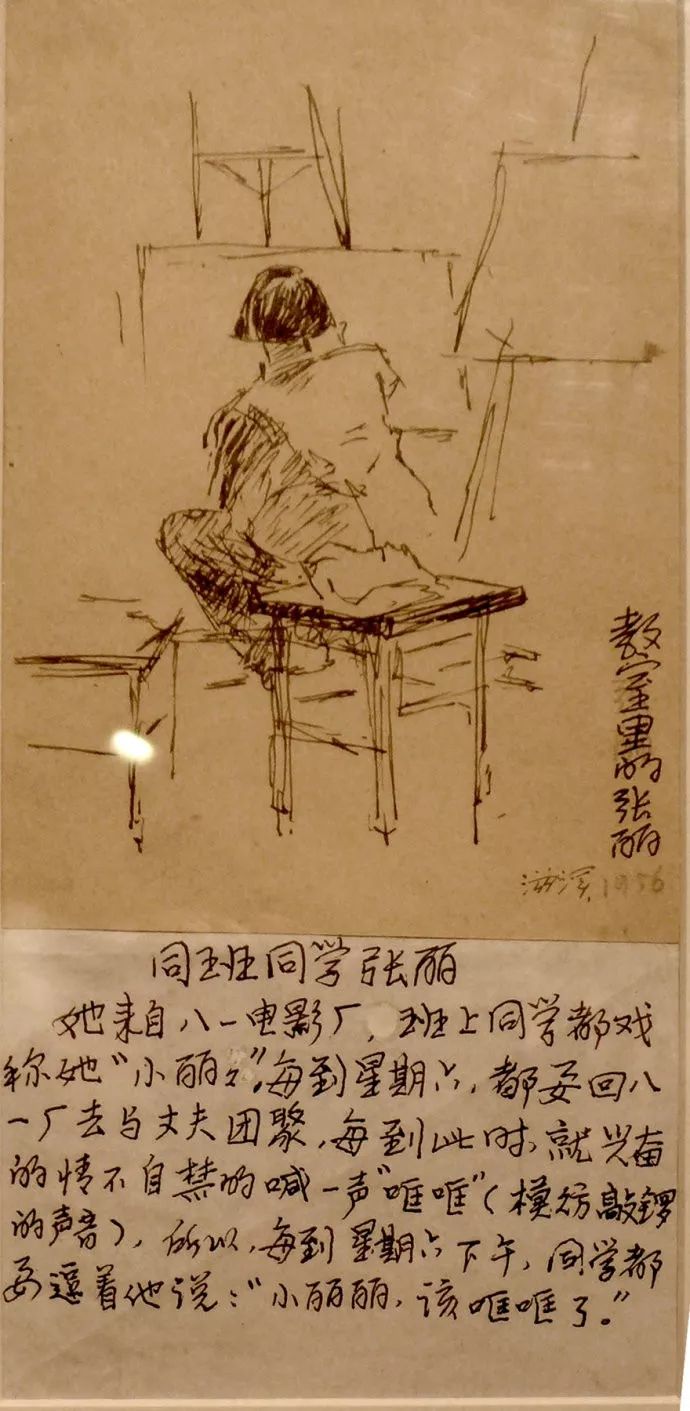 教室里的张丽
滋溪 1956
同班同学张丽
她来自八一电影厂，班上同学都戏
称她“小丽々”。每到星期六，都要回八
一厂去与丈夫团聚，每到此时，就兴奋
的情不自禁的喊一声“哐哐”（模仿敲锣
的声音），所以，每到星期六下午，同学都
要逗着他说：“小丽丽，该哐哐了。”